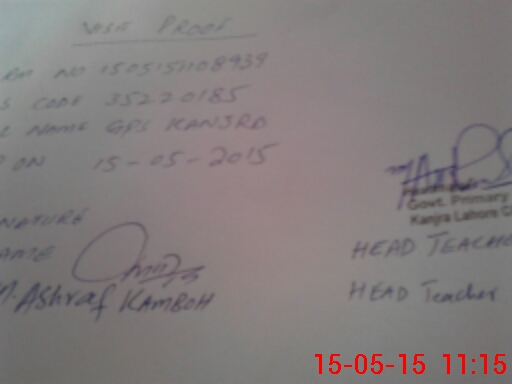 VISIT PROOF
RM NO 1505151108939
S CODE 35220185
L NAME GPS KANJRA
ON 15-05-2015
NATURE
AME
M. Ashraf KAMBOH
Govt. Primary
Kanjra Lahore C
HEAD TEACHE
HEAD Teacher
15-05-15 11:15